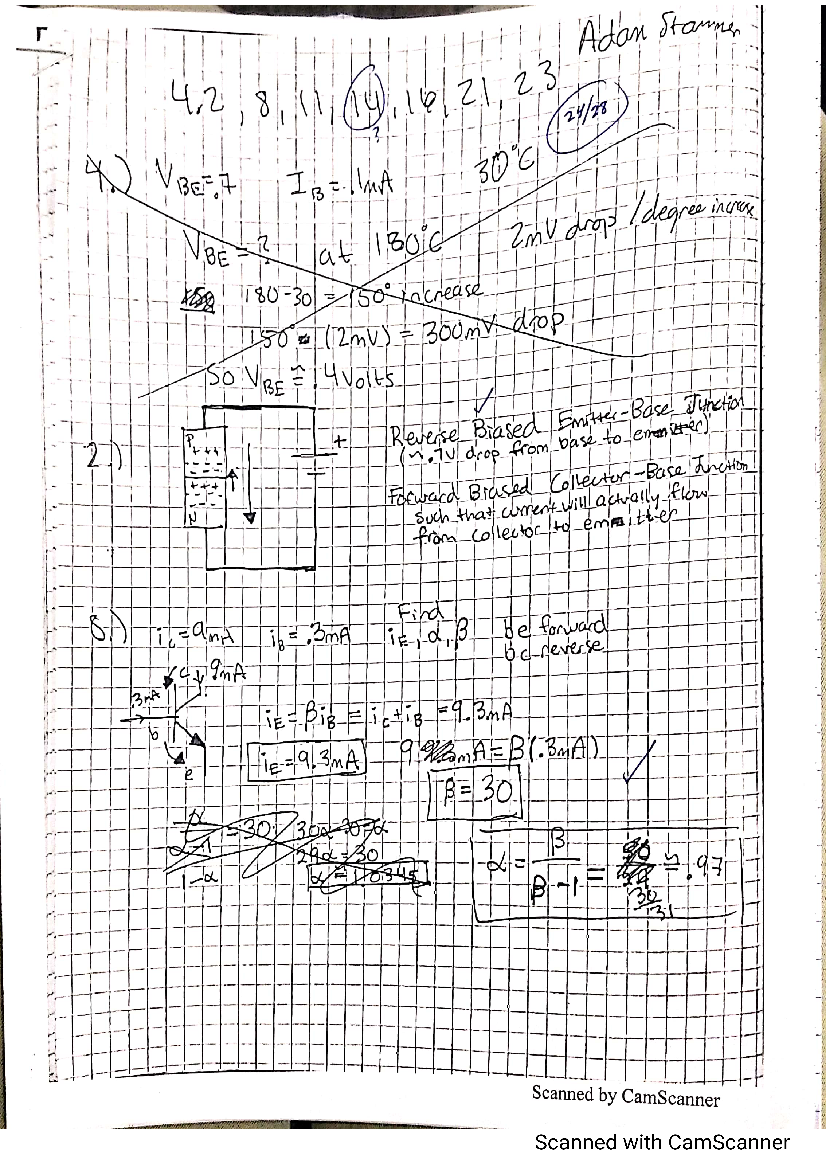 Adam Stammer
4.2, 8, 11, 14, 16, 21, 23
?
24/28
4.) V_BE=.7 I_B=.1mA 30°C
V_BE=? at 180°C 2mV drop/degree increase
180-30 = 150° increase
150° (2mV) = 300mV drop
So V_BE ≈ .4volts
2.)
P
+++
---
+++
---
N
+
Reverse Biased Emitter-Base Junction
(~.7V drop from base to emitter)
Forward Biased Collector-Base Junction
such that current will actually flow
from collector to emitter
8.) i_c=9mA i_B=.3mA Find i_E, α, β be forward
bc reverse
.3mA
c
9mA
b
e
i_E=βi_B = i_c+i_B = 9.3mA
i_E=9.3mA
9 mA=β(.3mA)
β=30
α/(1-α) = 30 30-30α
29α=30
α = β/(β-1) = 30/31 ≈ .97
Scanned by CamScanner
Scanned with CamScanner